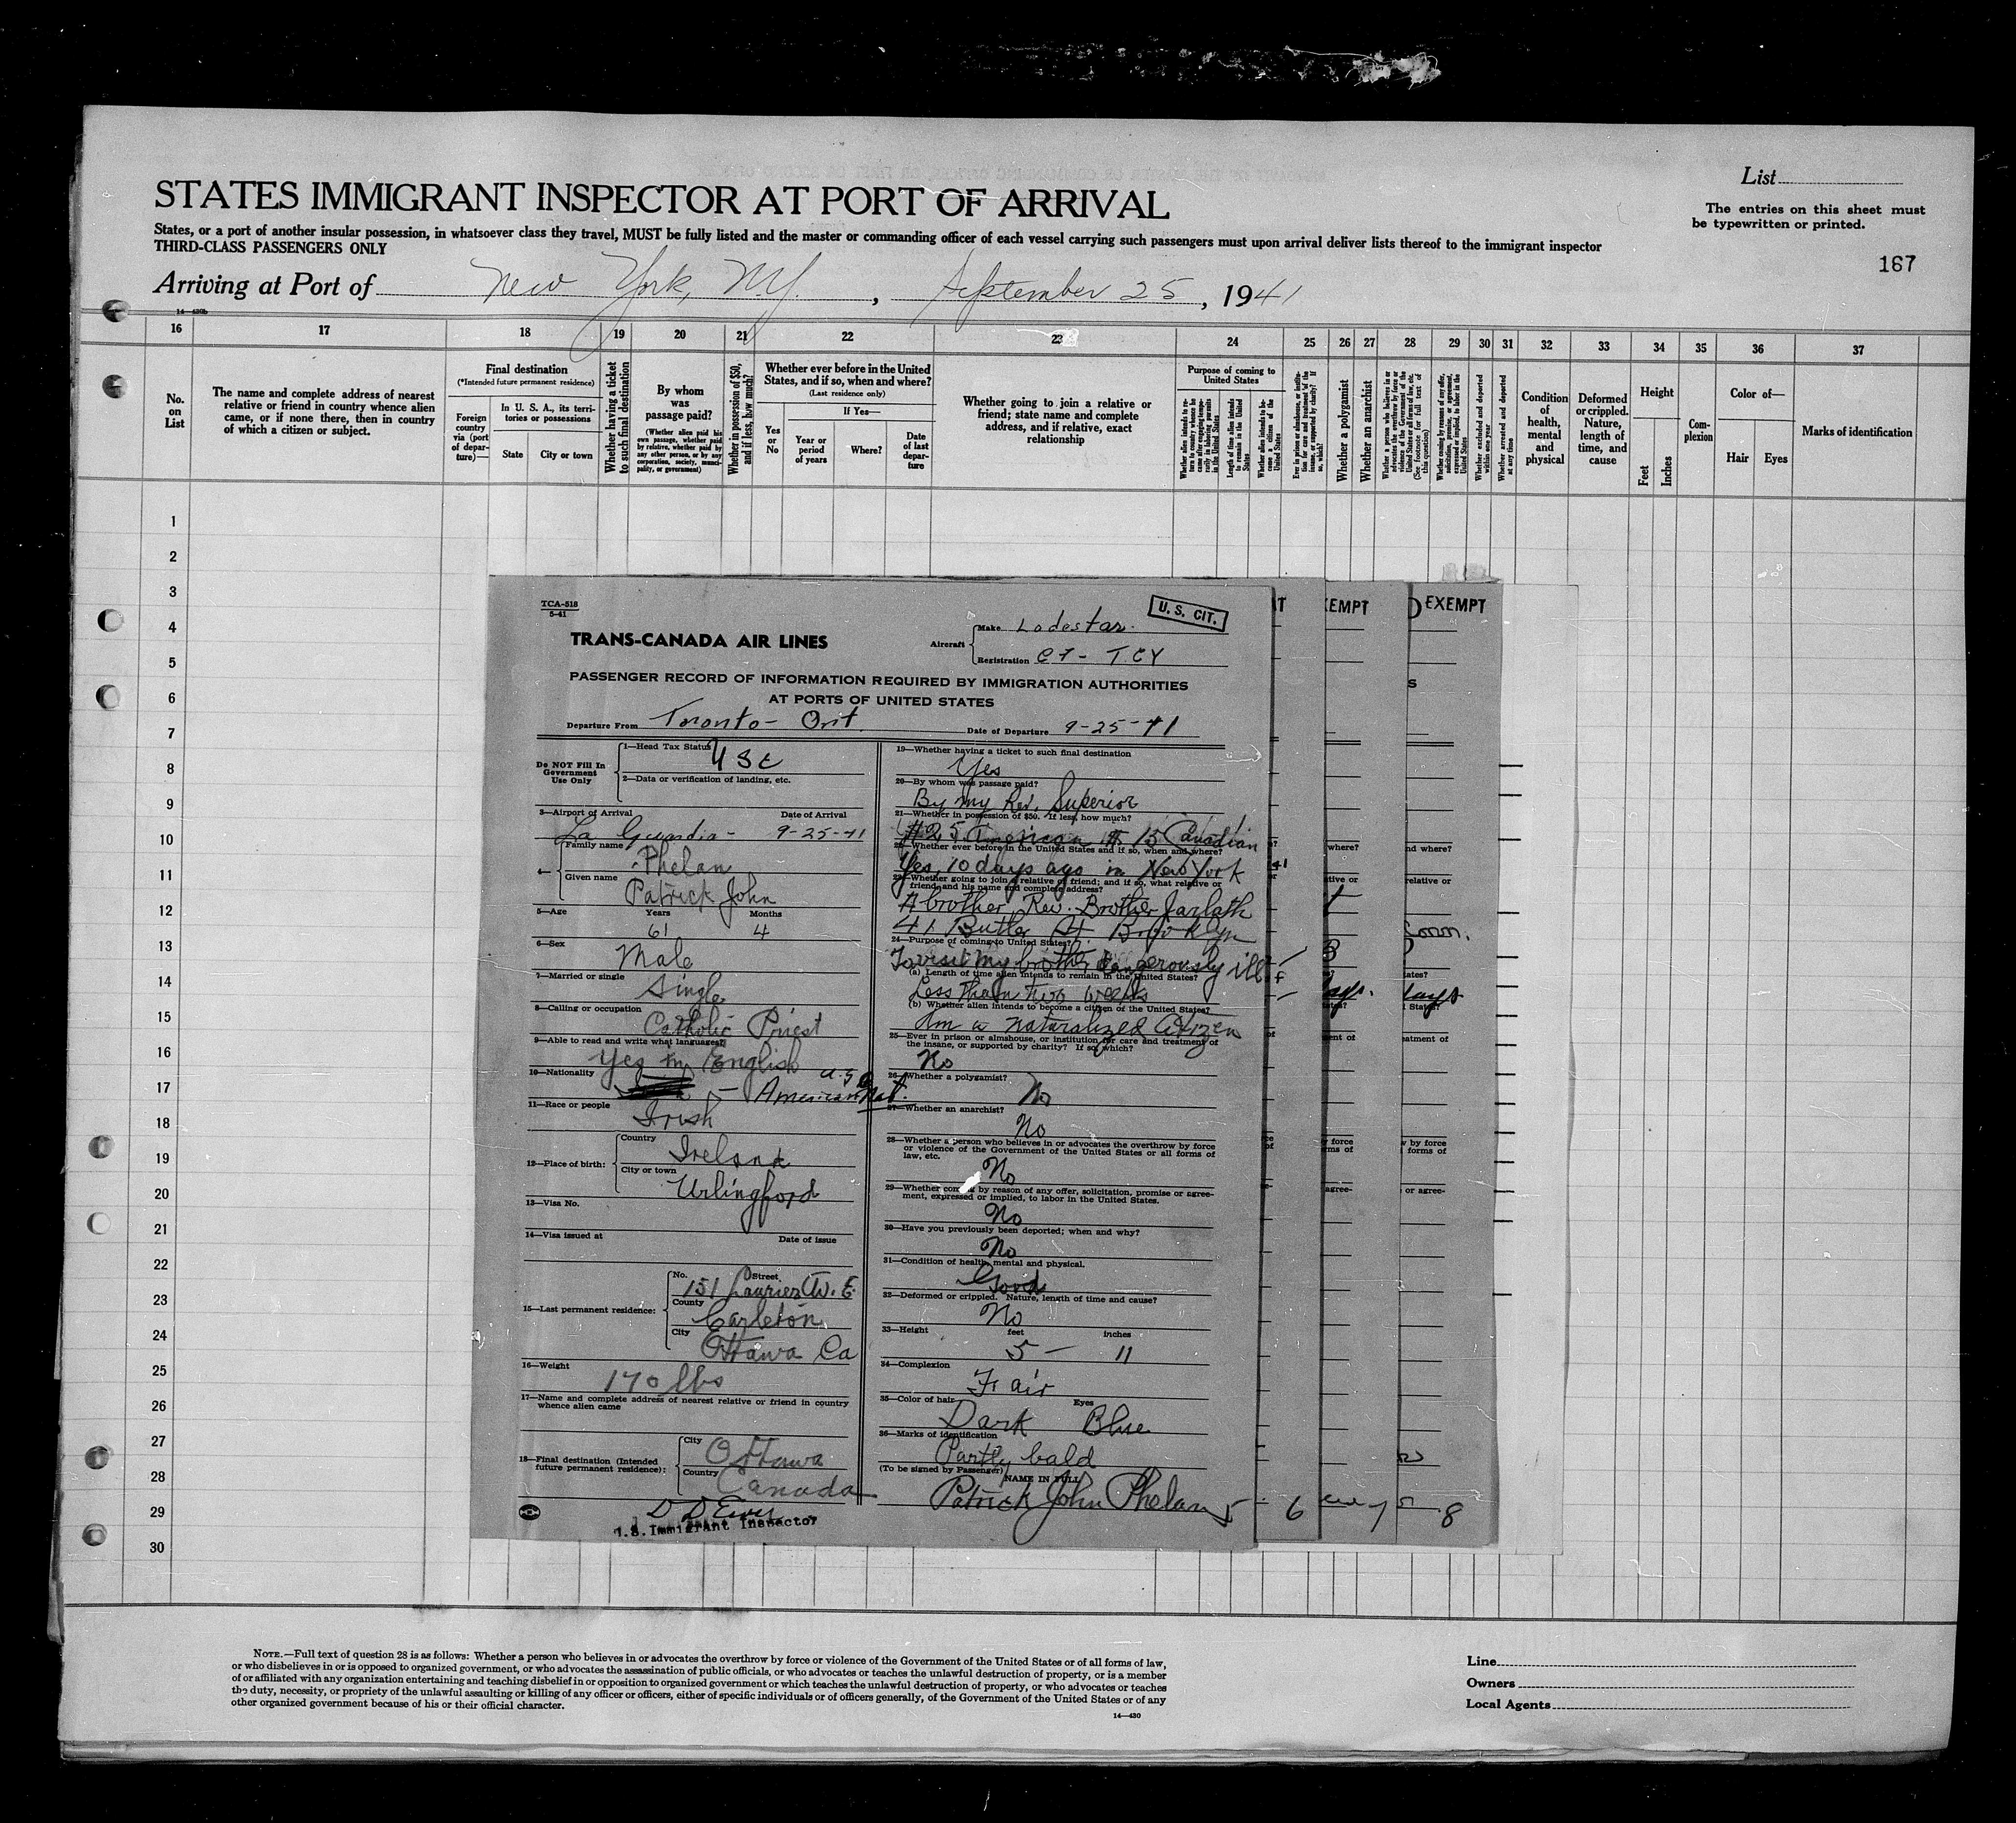 STATES IMMIGRANT INSPECTOR AT PORT OF ARRIVAL
States, or a port of another insular possession, in whatsoever class they travel, MUST be fully listed and the master or commanding officer of each vessel carrying such passengers must upon arrival deliver lists thereof to the immigrant inspector
THIRD-CLASS PASSENGERS ONLY
List
The entries on this sheet must
be typewritten or printed.
167
Arriving at Port of New York, N.Y., September 25, 1941
14—430b
16 17 18 19 20 21 22 23 24 25 26 27 28 29 30 31 32 33 34 35 36 37
No. on List
The name and complete address of nearest relative or friend in country whence alien came, or if none there, then in country of which a citizen or subject.
Final destination
(*Intended future permanent residence)
Foreign country via (port of departure)—
In U. S. A., its territories or possessions
State
City or town
Whether having a ticket to such final destination
By whom was passage paid?
(Whether alien paid his own passage, whether paid by relative, whether paid by any other person, or by any corporation, society, municipality, or government)
Whether in possession of $50, and if less, how much?
Whether ever before in the United States, and if so, when and where?
(Last residence only)
Yes or No
If Yes—
Year or period of years
Where?
Date of last departure
Whether going to join a relative or friend; state name and complete address, and if relative, exact relationship
Purpose of coming to United States
Whether alien intends to return to country whence he came after engaging temporarily in laboring pursuits in the United States
Length of time alien intends to remain in the United States
Whether alien intends to become a citizen of the United States
Ever in prison or almshouse, or institution for care and treatment of the insane, or supported by charity? If so, which?
Whether a polygamist
Whether an anarchist
Whether a person who believes in or advocates the overthrow by force or violence of the Government of the United States or all forms of law, etc. (See footnote for full text of this question)
Whether coming by reason of any offer, solicitation, promise, or agreement, expressed or implied, to labor in the United States
Whether excluded and deported within one year
Whether arrested and deported at any time
Condition of health, mental and physical
Deformed or crippled. Nature, length of time, and cause
Height
Feet
Inches
Complexion
Color of—
Hair
Eyes
Marks of identification
1
2
3
4
5
6
7
8
9
10
11
12
13
14
15
16
17
18
19
20
21
22
23
24
25
26
27
28
29
30
TCA-518
5-41
U. S. CIT.
TRANS-CANADA AIR LINES
Aircraft
Make Lodestar
Registration CF-TCY
PASSENGER RECORD OF INFORMATION REQUIRED BY IMMIGRATION AUTHORITIES
AT PORTS OF UNITED STATES
Departure From Toronto - Ont.
Date of Departure 9-25-41
Do NOT Fill In
Government
Use Only
1—Head Tax Status USC
2—Data or verification of landing, etc.
3—Airport of Arrival Date of Arrival
La Guardia - 9-25-41
4—
Family name
Phelan
Given name
Patrick John
5—Age Years Months
61 4
6—Sex
Male
7—Married or single
Single
8—Calling or occupation
Catholic Priest
9—Able to read and write what languages?
Yes in English
10—Nationality
— American U.S. Nat.
11—Race or people
Irish
12—Place of birth:
Country
Ireland
City or town
Urlingford
13—Visa No.
14—Visa issued at Date of issue
15—Last permanent residence:
No. Street
151 Laurier Av. E.
County
Carleton
City
Ottawa Ca
16—Weight
170 lbs
17—Name and complete address of nearest relative or friend in country
whence alien came
18—Final destination (Intended
future permanent residence):
City
Ottawa
Country
Canada
U.S. Immigrant Inspector
19—Whether having a ticket to such final destination
Yes
20—By whom was passage paid?
By my Rev. Superior
21—Whether in possession of $50. If less, how much?
$25 American $15 Canadian
22—Whether ever before in the United States and if so, when and where?
Yes, 10 days ago in New York
23—Whether going to join a relative or friend; and if so, what relative or
friend and his name and complete address?
A brother Rev. Brother Jarlath
41 Butler St. Brooklyn
24—Purpose of coming to United States?
To visit my brother dangerously ill
(a) Length of time alien intends to remain in the United States?
Less than two weeks
(b) Whether alien intends to become a citizen of the United States?
Am a naturalized Citizen
25—Ever in prison or almshouse, or institution for care and treatment of
the insane, or supported by charity? If so, which?
No
26—Whether a polygamist?
No
27—Whether an anarchist?
No
28—Whether a person who believes in or advocates the overthrow by force
or violence of the Government of the United States or all forms of
law, etc.
No
29—Whether coming by reason of any offer, solicitation, promise or agree-
ment, expressed or implied, to labor in the United States.
No
30—Have you previously been deported; when and why?
No
31—Condition of health, mental and physical.
Good
32—Deformed or crippled. Nature, length of time and cause?
No
33—Height feet inches
5 — 11
34—Complexion
Fair
35—Color of hair Eyes
Dark Blue
36—Marks of identification
Partly bald
(To be signed by Passenger) NAME IN FULL
Patrick John Phelan
5 6 7 8
EXEMPT
EXEMPT
NOTE.—Full text of question 28 is as follows: Whether a person who believes in or advocates the overthrow by force or violence of the Government of the United States or of all forms of law,
or who disbelieves in or is opposed to organized government, or who advocates the assassination of public officials, or who advocates or teaches the unlawful destruction of property, or is a member
of or affiliated with any organization entertaining and teaching disbelief in or opposition to organized government or which teaches the unlawful destruction of property, or who advocates or teaches
the duty, necessity, or propriety of the unlawful assaulting or killing of any officer or officers, either of specific individuals or of officers generally, of the Government of the United States or of any
other organized government because of his or their official character.
14—430
Line
Owners
Local Agents